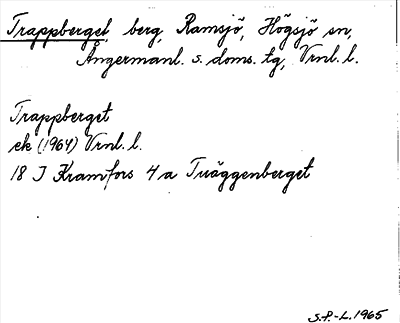 Trappberget, berg, Ramsjö, Högsjö sn,
Ångermanl. s. doms. tg, Vrnl. l.
Trappberget
ek (1964) Vrnl. l.
18 I Kramfors 4 a Tväggenberget
S.P.-L. 1965